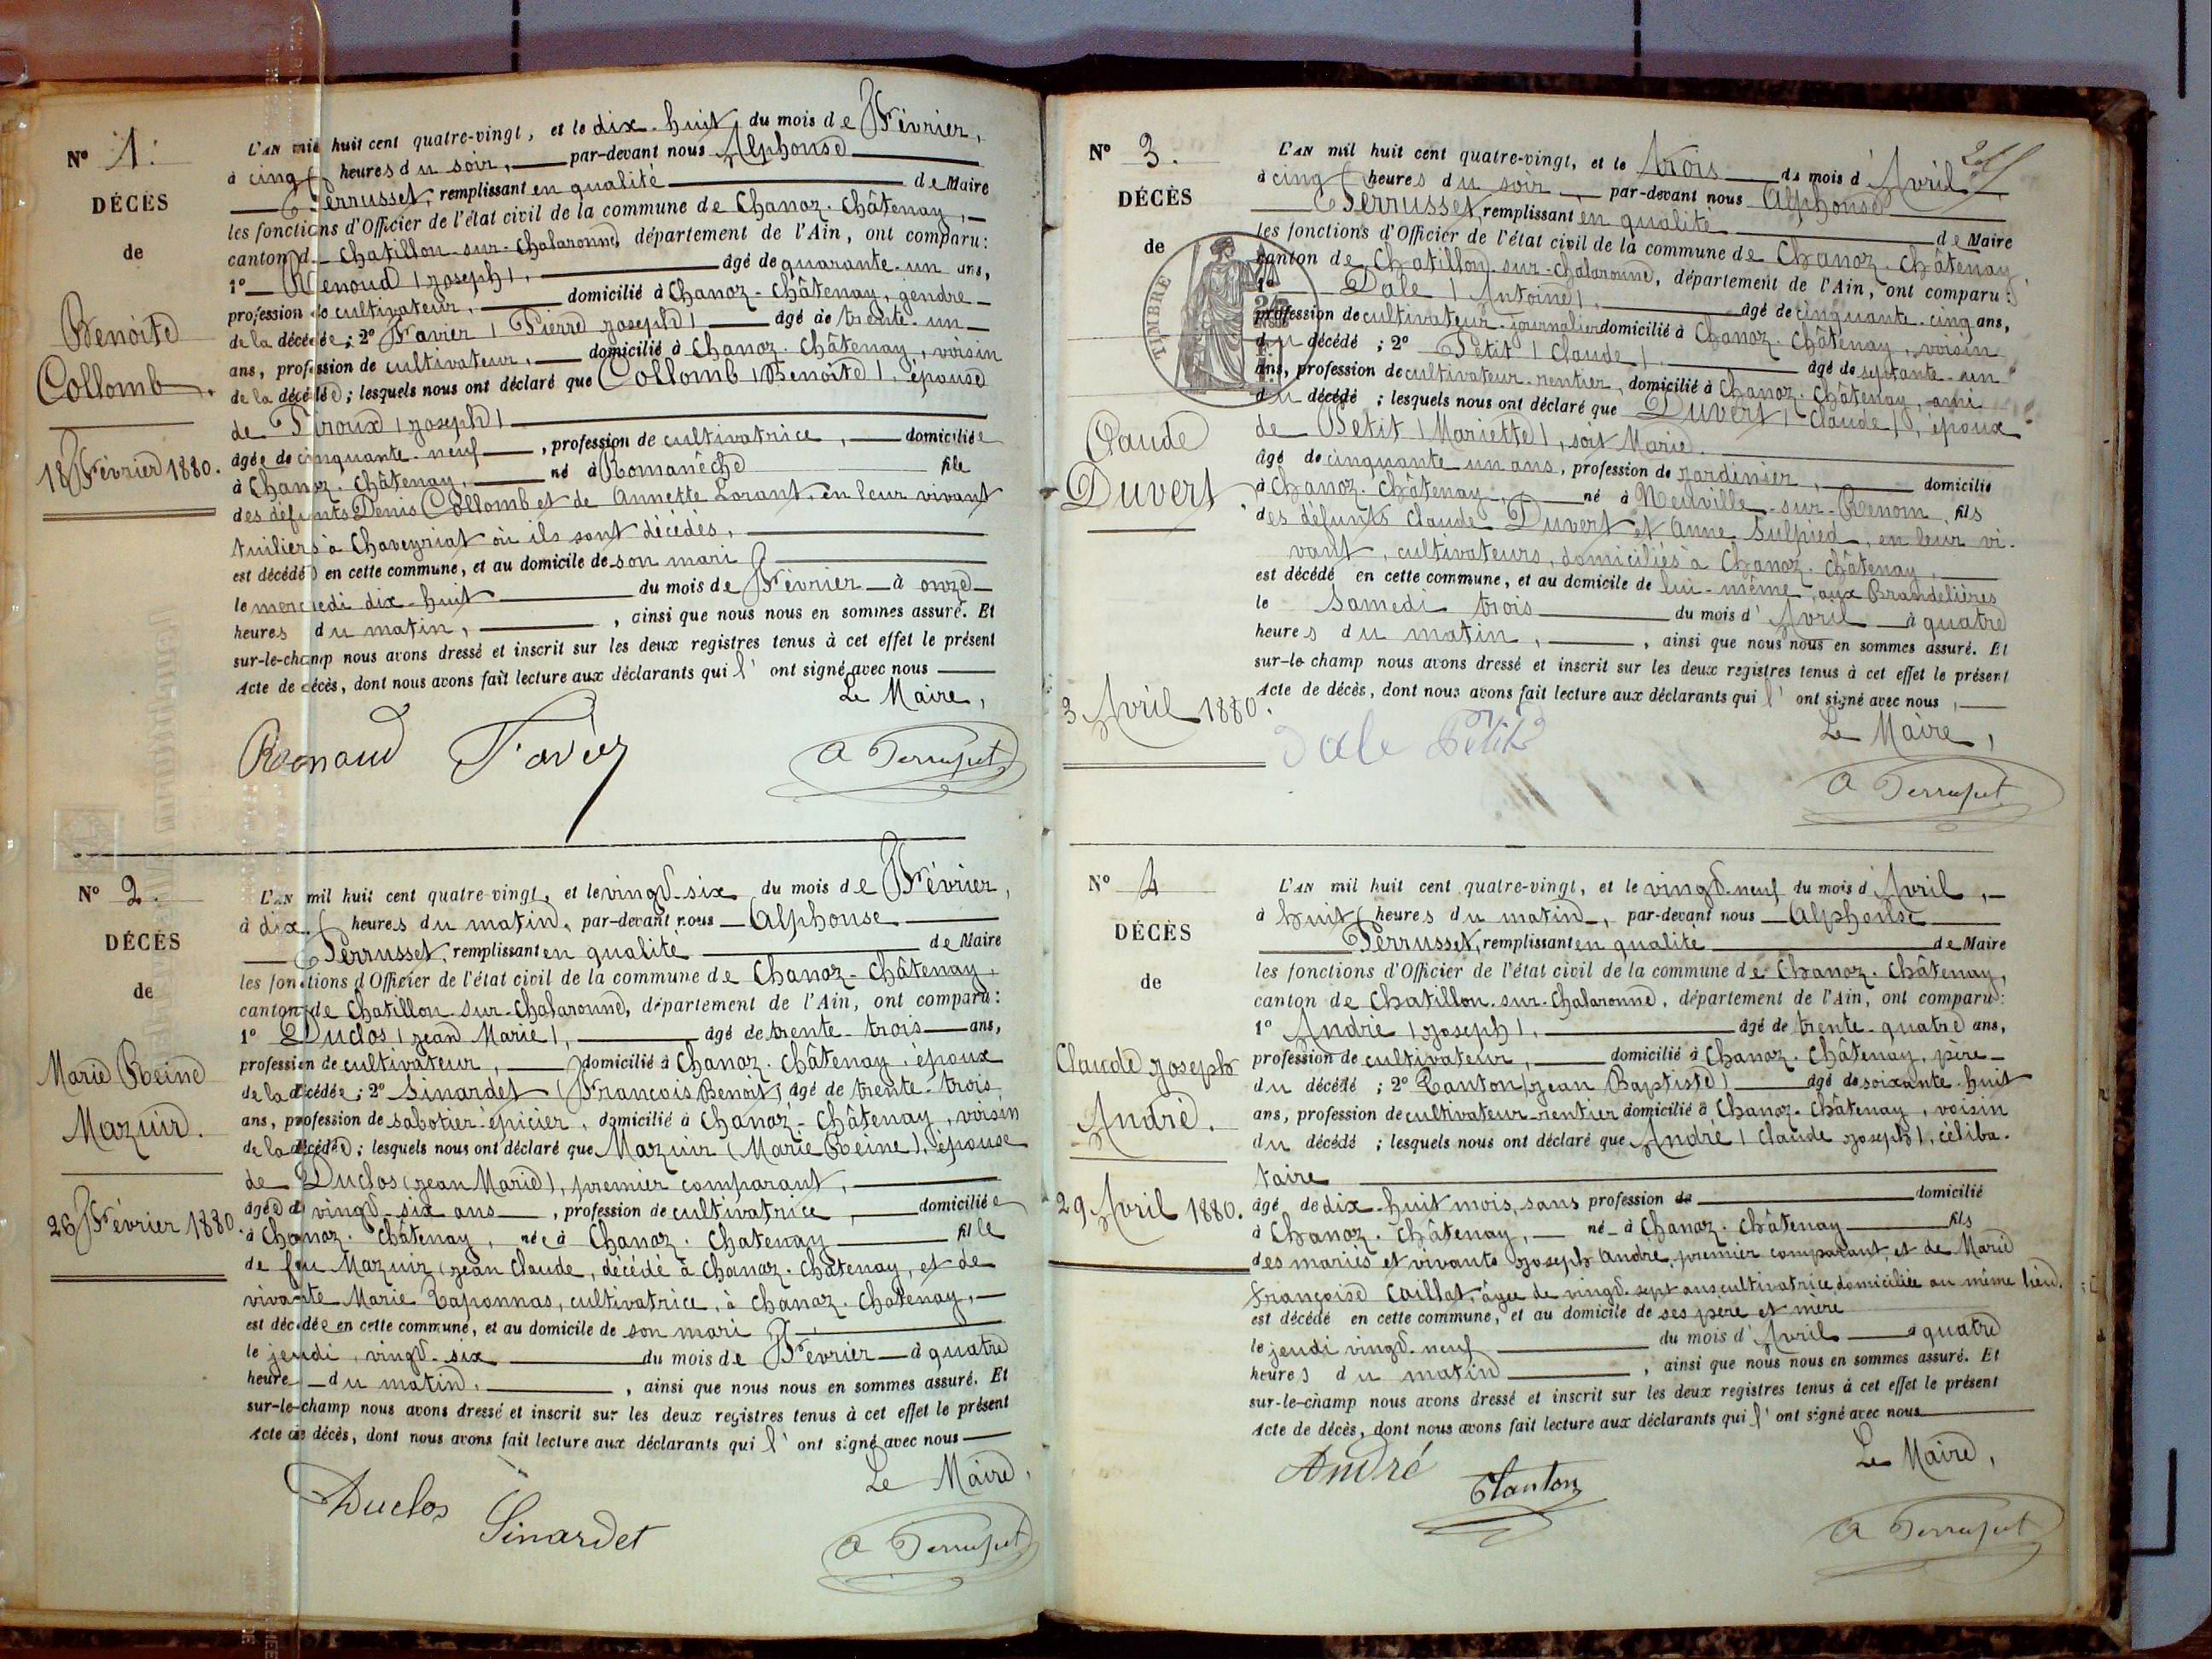 N° 1.
DÉCÈS
de
Benoite
Collomb.
18 Février 1880.
L'AN mil huit cent quatre-vingt, et le dix-huit du mois de Février,
à cinq heures du soir, par-devant nous Alphonse
Perrusset, remplissant en qualité de Maire
les fonctions d'Officier de l'état civil de la commune de Chanoz-Châtenay,
canton de Chatillon-sur-Chalaronne, département de l'Ain, ont comparu :
1° Renoud (Joseph), âgé de quarante-un ans,
profession de cultivateur, domicilié à Chanoz-Châtenay, gendre
de la décédée ; 2° Favier (Pierre Joseph) âgé de trente-un
ans, profession de cultivateur, domicilié à Chanoz-Châtenay, voisin
de la décédée ; lesquels nous ont déclaré que Collomb (Benoite), épouse
de Piroux (Joseph)
âgée de cinquante-neuf, profession de cultivatrice, domiciliée
à Chanoz-Châtenay, né à Romanèche fille
des défunts Denis Collomb et de Annette Lorant, en leur vivant
tuiliers à Chaveyriat où ils sont décédés,
est décédée en cette commune, et au domicile de son mari
le mercredi dix-huit du mois de Février à onze
heures du matin, , ainsi que nous nous en sommes assuré. Et
sur-le-champ nous avons dressé et inscrit sur les deux registres tenus à cet effet le présent
Acte de décès, dont nous avons fait lecture aux déclarants qui l'ont signé avec nous
Le Maire,
Renoud Favier A Perrusset
N° 2.
DÉCÈS
de
Marie Reine
Mazuir.
26 Février 1880.
L'AN mil huit cent quatre-vingt, et le vingt-six du mois de Février,
à dix heures du matin, par-devant nous Alphonse
Perrusset, remplissant en qualité de Maire
les fonctions d'Officier de l'état civil de la commune de Chanoz-Châtenay,
canton de Chatillon-sur-Chalaronne, département de l'Ain, ont comparu :
1° Duclos (Jean Marie), âgé de trente-trois ans,
profession de cultivateur, domicilié à Chanoz-Châtenay, époux
de la décédée ; 2° Sinardet (François Benoit) âgé de trente-trois
ans, profession de sabotier-épicier, domicilié à Chanoz-Châtenay, voisin
de la décédée ; lesquels nous ont déclaré que Mazuir (Marie Reine), épouse
de Duclos (Jean Marie), premier comparant,
âgée de vingt-six ans, profession de cultivatrice, domiciliée
à Chanoz-Châtenay, née à Chanoz-Chatenay fille
de feu Mazuir (Jean Claude, décédé à Chanoz-Châtenay, et de
vivante Marie Taponnas, cultivatrice, à Chanoz-Chatenay,
est décédée en cette commune, et au domicile de son mari
le jeudi, vingt-six du mois de Février à quatre
heure du matin, , ainsi que nous nous en sommes assuré. Et
sur-le-champ nous avons dressé et inscrit sur les deux registres tenus à cet effet le présent
Acte de décès, dont nous avons fait lecture aux déclarants qui l'ont signé avec nous
Le Maire,
Duclos Sinardet A Perrusset
N° 3.
DÉCÈS
de
Claude
Duvert
3 Avril 1880.
TIMBRE
L'AN mil huit cent quatre-vingt, et le trois du mois d'Avril
à cinq heures du soir par-devant nous Alphonse
Perrusset, remplissant en qualité de Maire
les fonctions d'Officier de l'état civil de la commune de Chanoz-Châtenay
canton de Chatillon-sur-Chalaronne, département de l'Ain, ont comparu :
1° Dale (Antoine), âgé de cinquante-cinq ans,
profession de cultivateur-journalier domicilié à Chanoz-Châtenay, voisin
du décédé ; 2° Petit (Claude) âgé de septante-un
ans, profession de cultivateur-rentier, domicilié à Chanoz-Châtenay, ami
du décédé ; lesquels nous ont déclaré que Duvert (Claude), époux
de Petit (Mariette), soit Marie.
âgé de cinquante un ans, profession de jardinier, domicilié
à Chanoz-Châtenay, né à Neuville-sur-Renom, fils
des défunts Claude Duvert et Anne Sulpied, en leur vi-
vant, cultivateurs, domiciliés à Chanoz-Châtenay,
est décédé en cette commune, et au domicile de lui-même, aux Brandelières
le Samedi trois du mois d'Avril à quatre
heures du matin, , ainsi que nous nous en sommes assuré. Et
sur-le-champ nous avons dressé et inscrit sur les deux registres tenus à cet effet le présent
Acte de décès, dont nous avons fait lecture aux déclarants qui l'ont signé avec nous,
Le Maire,
Dale Petit A Perrusset
N° 4
DÉCÈS
de
Claude Joseph
André.
29 Avril 1880.
L'AN mil huit cent quatre-vingt, et le vingt-neuf du mois d'Avril,
à huit heures du matin, par-devant nous Alphonse
Perrusset, remplissant en qualité de Maire
les fonctions d'Officier de l'état civil de la commune de Chanoz-Châtenay,
canton de Chatillon-sur-Chalaronne, département de l'Ain, ont comparu :
1° André (Joseph), âgé de trente-quatre ans,
profession de cultivateur, domicilié à Chanoz-Châtenay, père
du décédé ; 2° Tanton (Jean Baptiste) âgé de soixante-huit
ans, profession de cultivateur-rentier domicilié à Chanoz-Châtenay, voisin
du décédé ; lesquels nous ont déclaré que André (Claude Joseph), céliba-
taire
âgé de dix-huit mois, sans profession de domicilié
à Chanoz-Châtenay, né à Chanoz-Châtenay fils
des mariés et vivants Joseph André, premier comparant et de Marie
Françoise Caillat, âgée de vingt-sept ans cultivatrice domiciliée au même lieu.
est décédé en cette commune, et au domicile de ses père et mère
le jeudi vingt-neuf du mois d'Avril à quatre
heures du matin , ainsi que nous nous en sommes assuré. Et
sur-le-champ nous avons dressé et inscrit sur les deux registres tenus à cet effet le présent
Acte de décès, dont nous avons fait lecture aux déclarants qui l'ont signé avec nous
Le Maire,
André Tanton A Perrusset